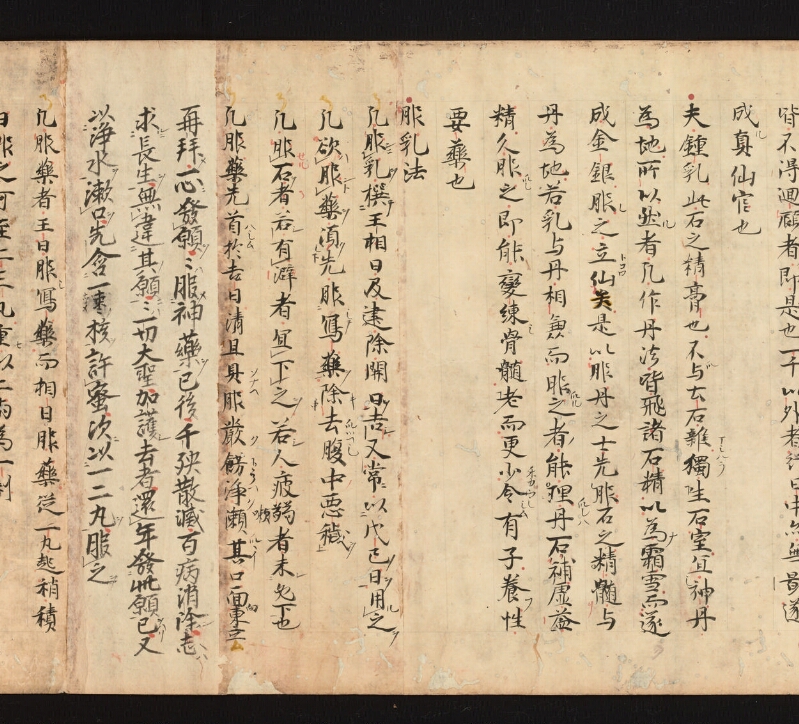 皆不得迴顧者即是也一千以外者
成真仙官也
夫鍾乳此石之精膏也不与土石雜獨生石室宜神丹
為地所以然者凡作丹法皆飛諸石精以為霜雪而遂
成金銀服之立仙矣是以服丹之士先服石之精髓与
丹為地若乳与丹相兼而服之者能理丹石補虚益
精久服之即能變練骨髓老而更少令有子養性
要藥也
服乳法
凡服乳撰王相日及建除開日吉又常以戊己日用之
凡欲服藥須先服寫藥除去腹中悪穢
凡服石者若有澼者宜下之若人疲弱者未免下也
凡服藥先首於吉日清旦具服嚴餝淨潄其口面東立
再拜一心發願〻服神藥已後千殃散滅百病消除志
求長生無違其願〻一切大聖加護去者還年發此願已又
以淨水漱口先含一棗核許蜜次以一二丸服之
凡服藥者王日服寫藥而相日服藥從一丸起稍積
日服之可至二三丸重以二兩為一劑